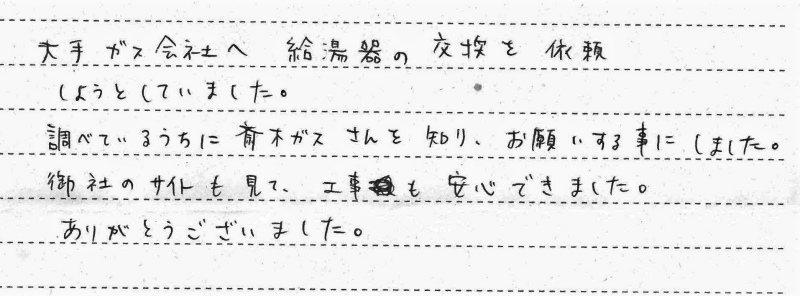 大手ガス会社へ 給湯器の 交換を 依頼
しようとしていました。
調べているうちに 斉木ガス さんを 知り、お願いする事にしました。
御社のサイトも見て、工事も 安心できました。
ありがとうございました。